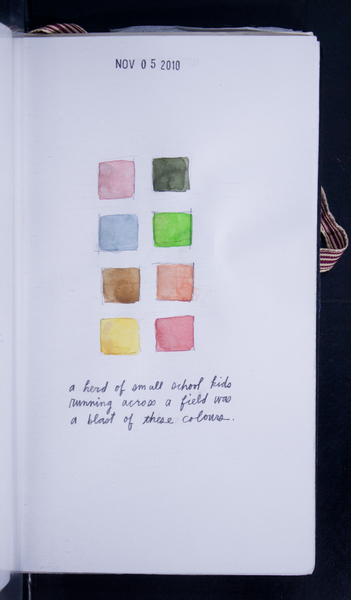 NOV 05 2010
a herd of small school kids
running across a field was
a blast of these colours.